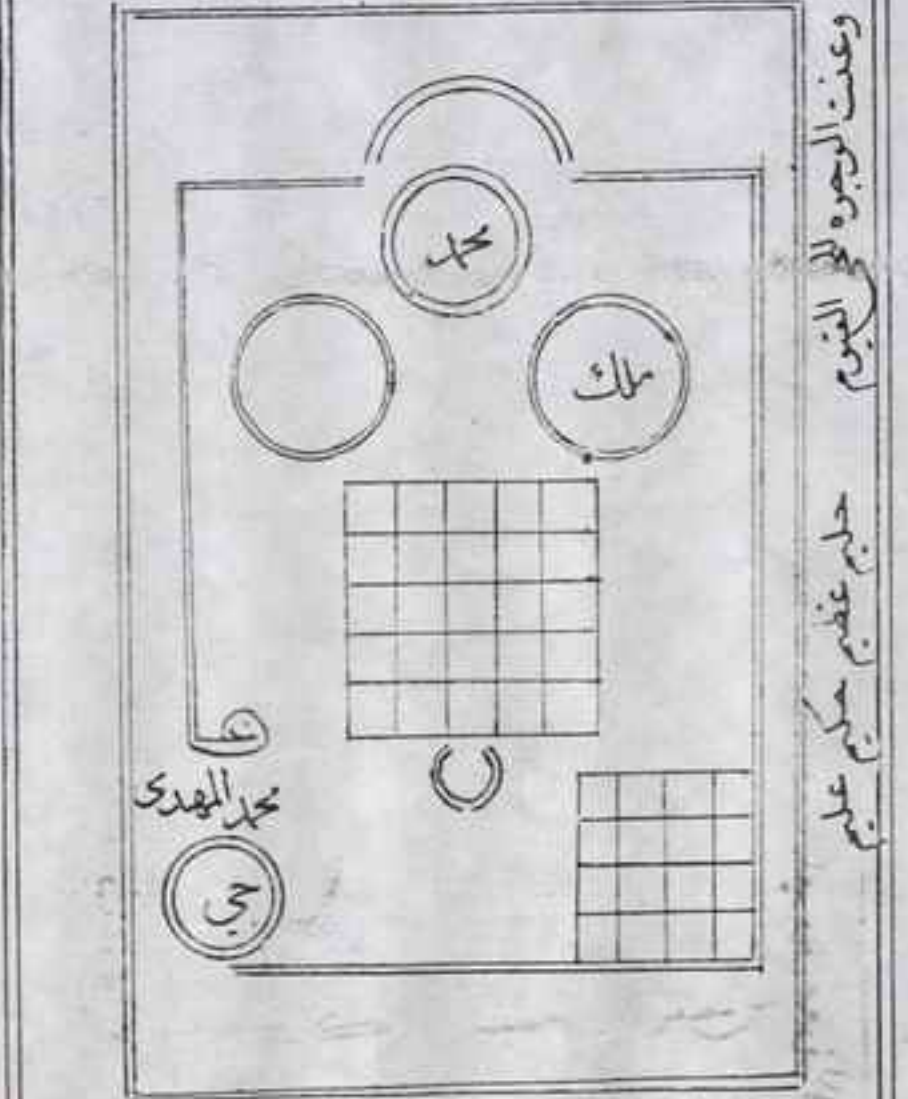 وعنت الوجوه للحي القيوم
حليم حكيم عليم
محمد
ملك
محمد المهدى
حي